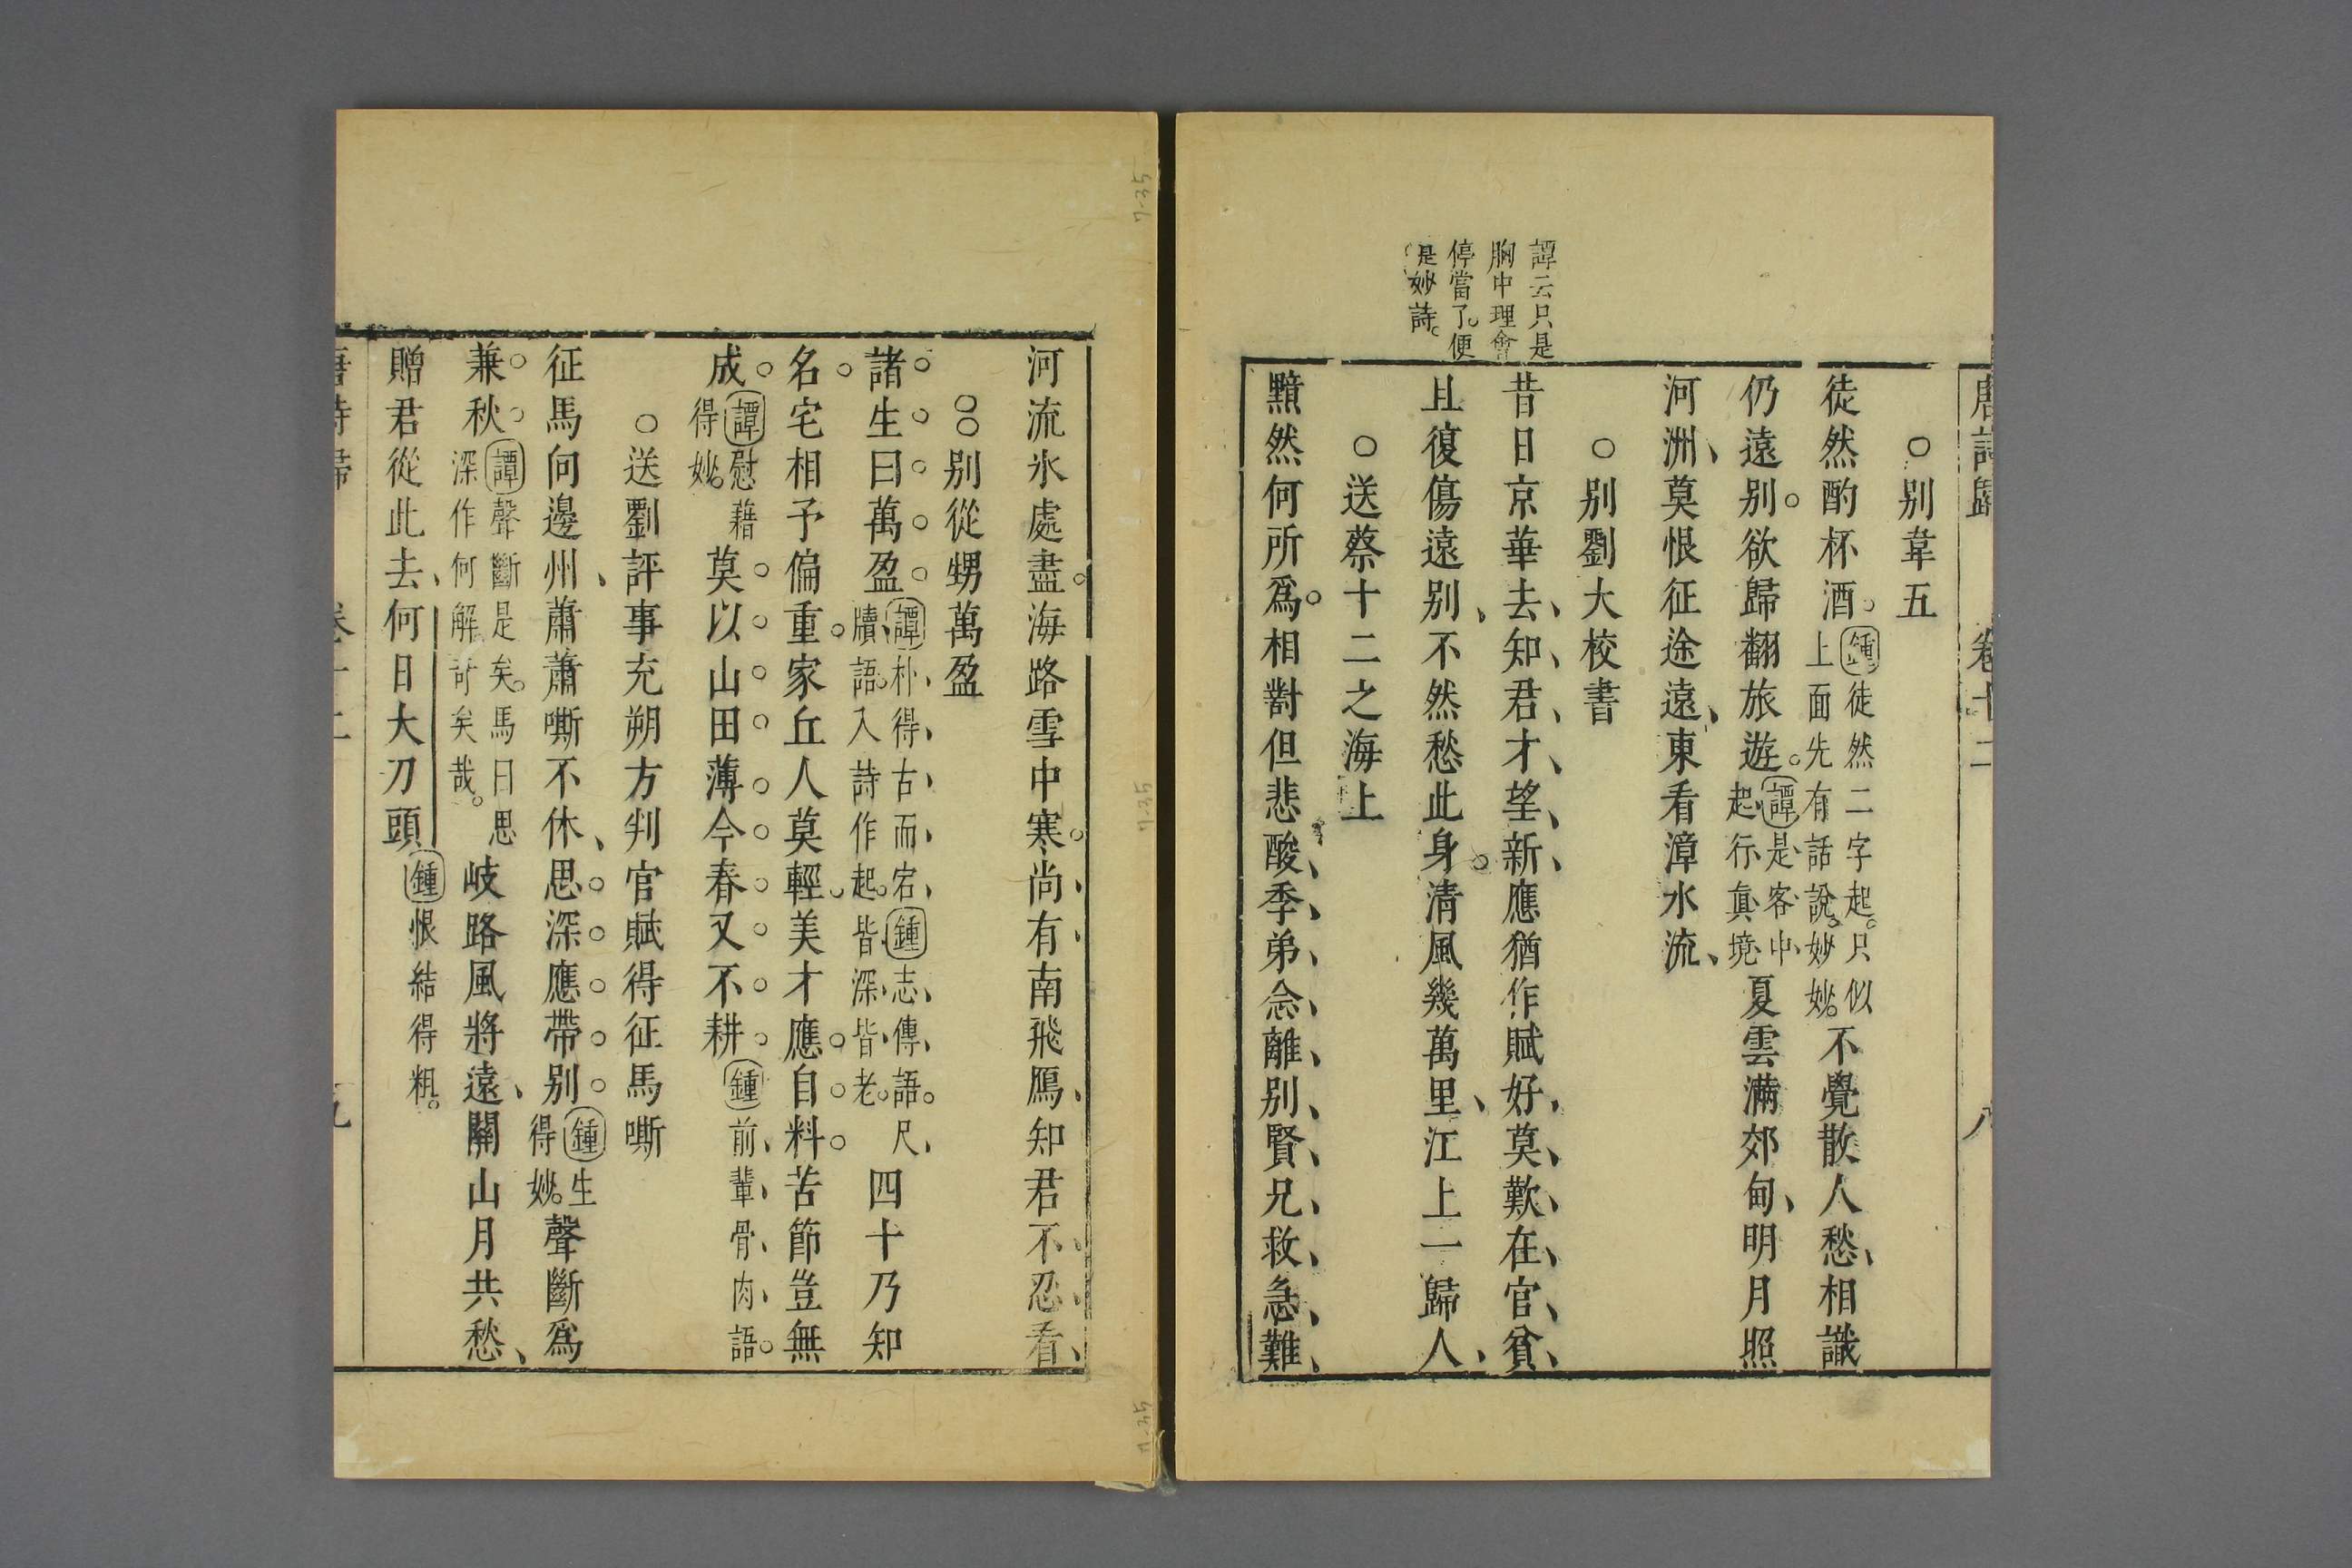 唐詩歸 卷十二 八
○别韋五
徒然酌杯酒。鍾徒然二字起。只似上面先有話說。妙妙。不覺散人愁、相識
仍遠别。欲歸翻旅遊。譚是客中起行真境夏雲滿郊甸、明月照
河洲、莫恨征途遠、東看漳水流、
○别劉大校書
昔日京華去、知君才望新、應猶作賦好、莫歎在官貧、
且復傷遠别、不然愁此身。清風幾萬里、江上一歸人、
○送蔡十二之海上
黯然何所爲。相對但悲酸、季弟念離别、賢兄救急難、
譚云只是
胸中理會
停當了。便
是妙詩。
河流氷處盡。海路雪中寒。尚有南飛鴈、知君不忍看、
○○别從甥萬盈
諸生曰萬盈譚朴得古而宕、鍾志傳語。尺牘語。入詩作起。皆深皆老。四十乃知
名宅相予偏重。家丘人莫輕。美才應自料。苦節豈無
成。譚慰藉得妙。莫以山田薄今春又不耕鍾前輩骨肉語。
○送劉評事充朔方判官賦得征馬嘶
征馬向邊州、蕭蕭嘶不休、思深應帶别鍾生得妙。聲斷爲
兼秋。譚聲斷是矣。馬曰思深作何解訏矣哉。岐路風將遠、關山月共愁、
贈君從此去、何日大刀頭鍾恨結得粗。
唐詩歸 卷十二 九
7-35
7-35
7-35